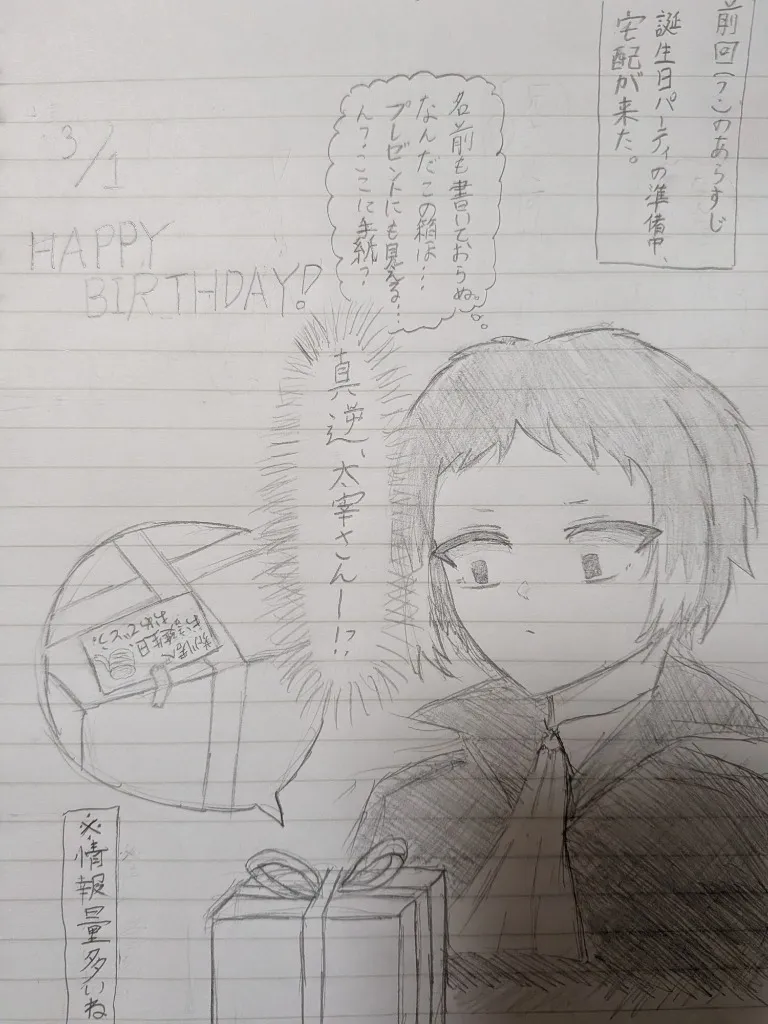 前回(?)のあらすじ
誕生日パーティの準備中、
宅配が来た。
名前も書いておらぬ。
なんだこの箱は…
プレゼントにも見える…
ん?ここに手紙?
3/1
HAPPY
BIRTHDAY!
真逆、太宰さんー!?
お誕生日
おめでとう
※情報量多いね